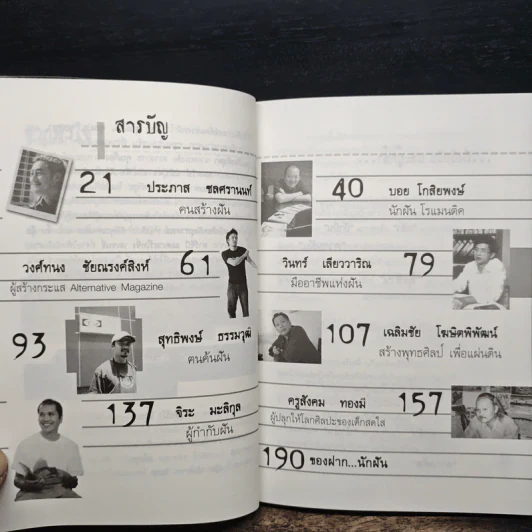 สารบัญ
21 ประภาส ชลศรานนท์
คนสร้างฝัน
วงศ์ทนง ชัยณรงค์สิงห์ 61
ผู้สร้างกระแส Alternative Magazine
93 สุทธิพงษ์ ธรรมวุฒิ
คนค้นฝัน
137 จิระ มะลิกุล
ผู้กำกับฝัน
40 บอย โกสิยพงษ์
นักฝัน โรแมนติค
วินทร์ เลียววาริณ 79
มืออาชีพแห่งฝัน
107 เฉลิมชัย โฆษิตพิพัฒน์
สร้างพุทธศิลป์ เพื่อแผ่นดิน
ครูสังคม ทองมี 157
ผู้ปลุกให้โลกศิลปะของเด็กสดใส
190 ของฝาก...นักฝัน